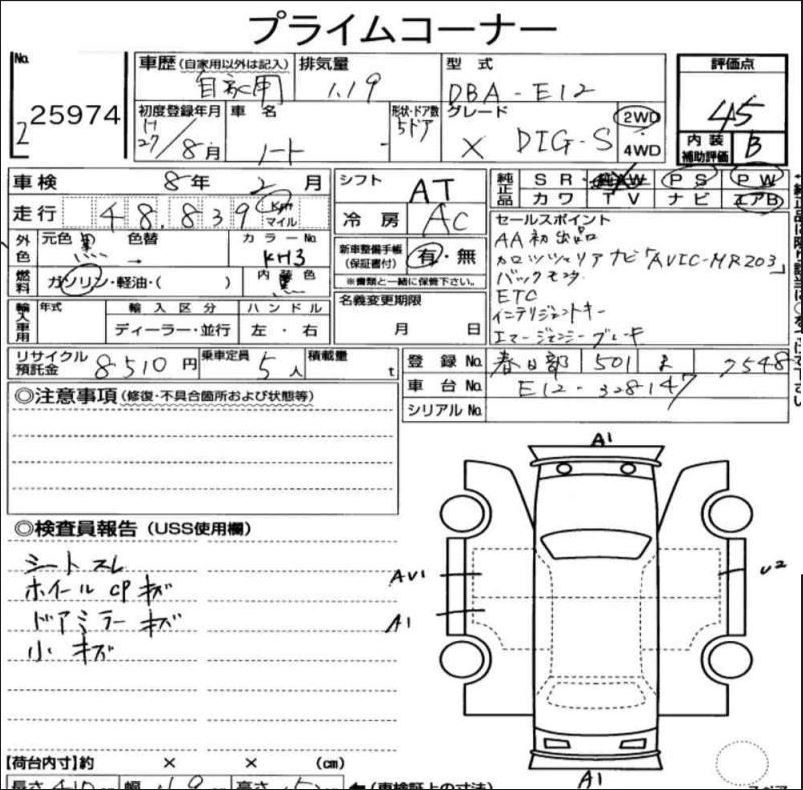 プライムコーナー
No. 2 25974
車歴 (自家用以外は記入) 自家用
排気量 1.19
型式 DBA-E12
評価点 4.5
初度登録年月 H27/8月
車名 ノート
形状・ドア数 5ドア
グレード X DIG-S
2WD
4WD
内装補助評価 B
車検 8年 2月
シフト AT
純正品 SR AW PS PW
カワ TV ナビ エアB
走行 48.839 Km マイル
冷房 AC
セールスポイント
AA初出品
カロッツェリアナビ「AVIC-MR203」
バックモニタ
ETC
インテリジェントキー
エマージェンシーブレーキ
外色 元色 黒 色替 →
カラーNo. KH3
新車整備手帳 (保証書付) 有・無
※書類と一緒に保管下さい。
燃料 ガソリン・軽油・( )
内装色 黒
名義変更期限 月 日
輸入車用 年式 輸入区分 ハンドル
ディーラー・並行 左・右
リサイクル預託金 8510円
乗車定員 5人
積載量 t
登録No. 春日部 501 7548
車台No. E12-328147
シリアルNo.
◎注意事項 (修復・不具合箇所および状態等)
◎検査員報告 (USS使用欄)
シートスレ
ホイールCPキズ
ドアミラーキズ
小キズ
A1
AV1
A1
U2
A1
【荷台内寸】約 × × (cm)
長さ 410 幅 169 高さ
(車検証上の寸法)
スペア